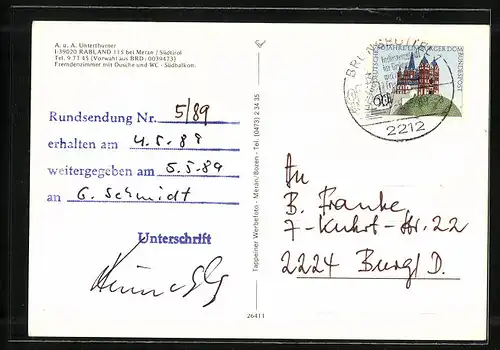 A. u. A. Unterthurner
I-39020 RABLAND 115 bei Meran / Südtirol
Tel. 9 73 45 (Vorwahl aus BRD: 0039473)
Fremdenzimmer mit Dusche und WC - Südbalkon.
Rundsendung Nr. 5/89
erhalten am 4.5.89
weitergegeben am 5.5.89
an G. Schmidt
Unterschrift
Tappeiner Werbefoto - Meran/Bozen - Tel. (0473) 2 34 35
26411
JAHRE LIMBURGER DOM
DEUTSCHE BUNDESPOST
60
2212
An
B. Franke
2224 Burg/D.